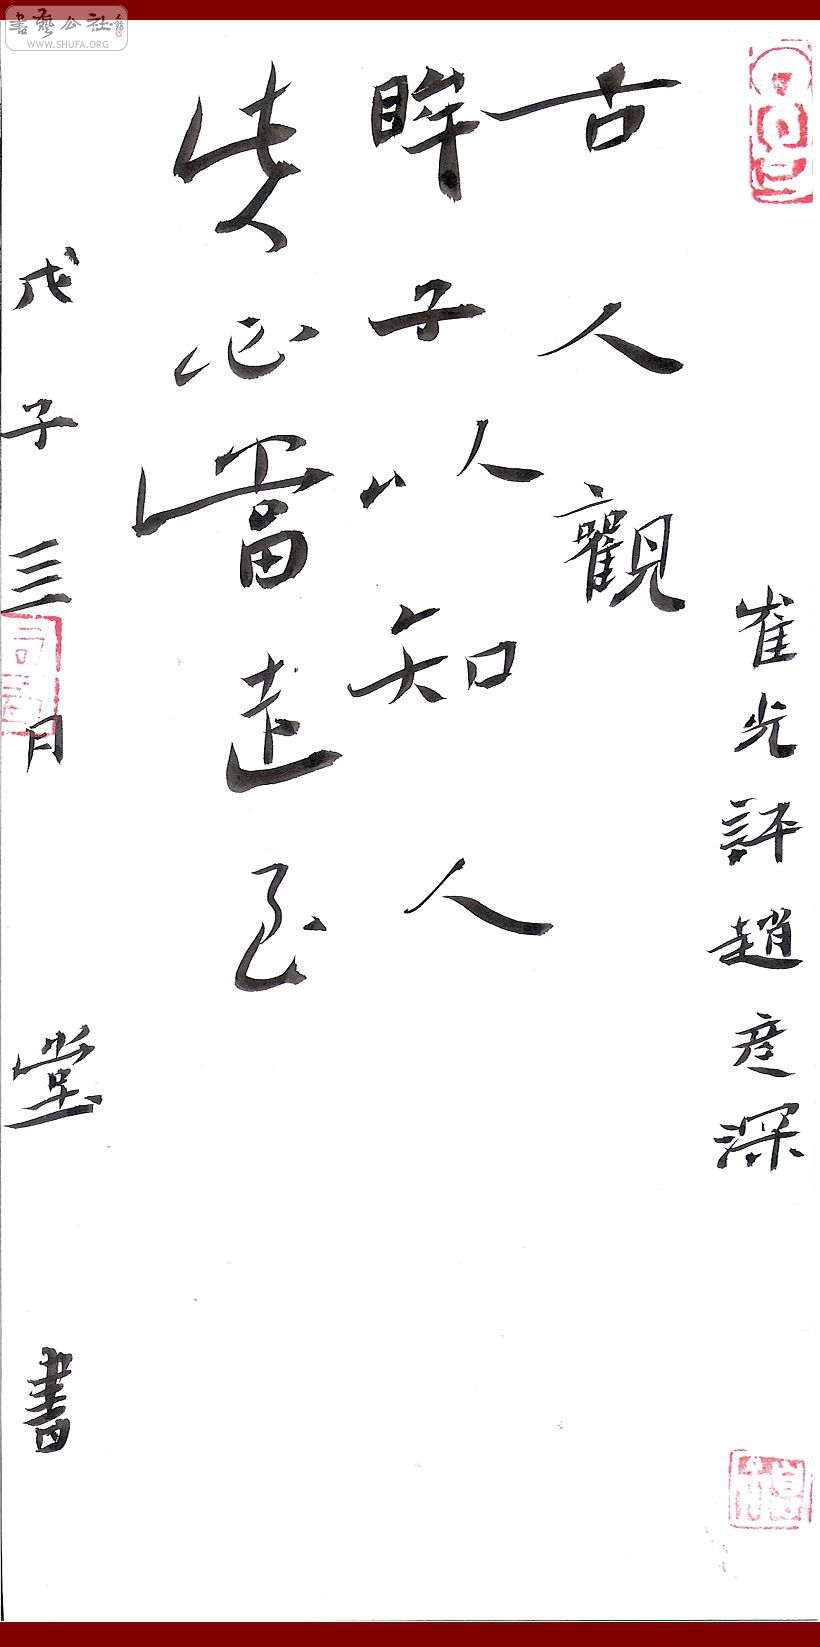 書藝公社
WWW.SHUFA.ORG
崔光評趙彦深
古人觀
眸子以知人
此人必當遠至
戊子三月 堂書